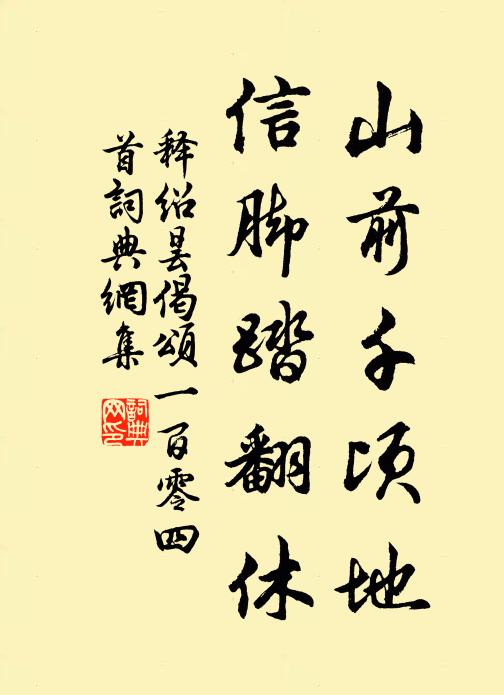 山前千顷地
信脚踏翻休
释绍昙偈颂一百零四
首词典網集
詞典網印